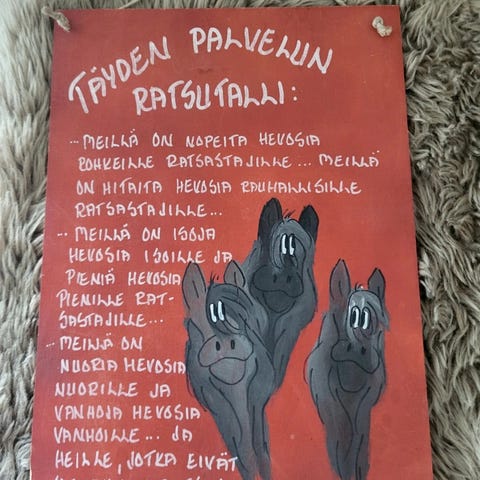 TÄYDEN PALVELUN
RATSUTALLI:
... MEILLÄ ON NOPEITA HEVOSIA
ROHKEILLE RATSASTAJILLE ... MEILLÄ
ON HITAITA HEVOSIA RAUHALLISILLE
RATSASTAJILLE...
... MEILLÄ ON ISOJA
HEVOSIA ISOILLE JA
PIENIÄ HEVOSIA
PIENILLE RAT-
SASTAJILLE...
... MEILLÄ ON
NUORIA HEVOSIA
NUORILLE JA
VANHOJA HEVOSIA
VANHOILLE... JA
HEILLE, JOTKA EIVÄT